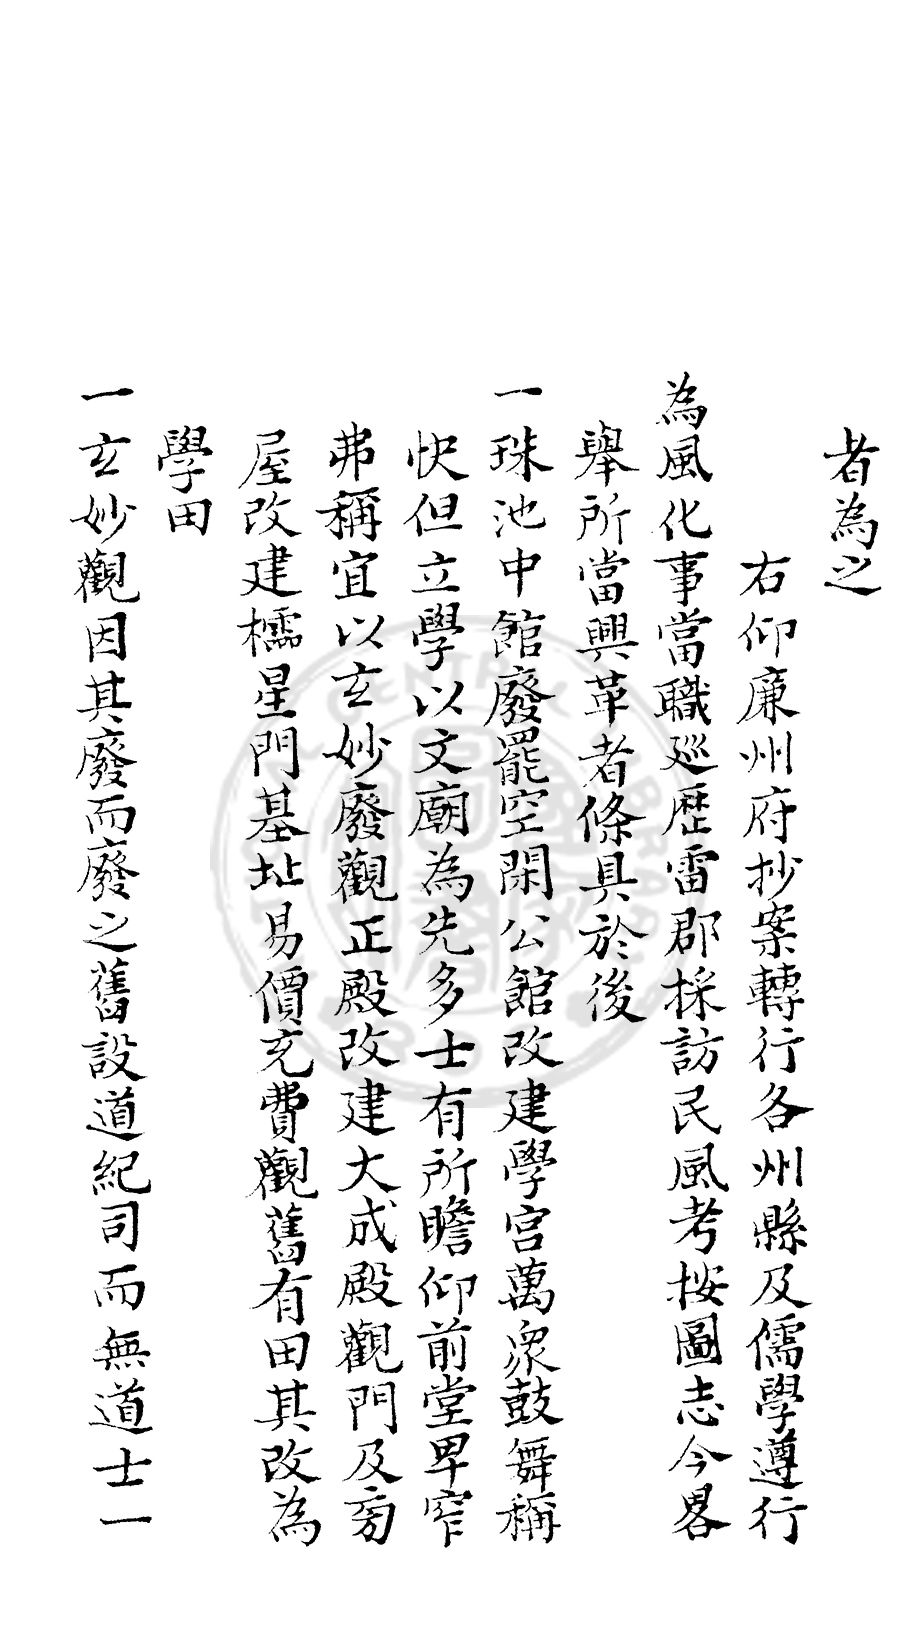 者為之
右仰廉州府抄案轉行各州縣及儒學遵行
為風化事當職廵歷雷郡採訪民風考按圖志今畧
舉所當興革者條具於後
一珠池中館廢罷空閑公館改建學宮萬衆鼓舞稱
快但立學以文廟為先多士有所瞻仰前堂卑窄
弗稱宜以玄妙廢觀正殿改建大成殿觀門及旁
屋改建櫺星門基址易價充費觀舊有田其改為
學田
一玄妙觀因其廢而廢之舊設道紀司而無道士一